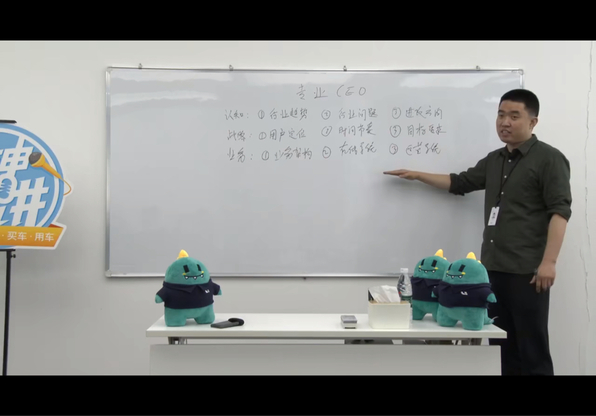 专业CEO
认知: ①行业趋势 ②行业问题 ③进化方向
战略: ①用户定位 ②时间节奏 ③目标
业务: ①业务架构 ② 系统 ③ 系统
讲
·买车·用车